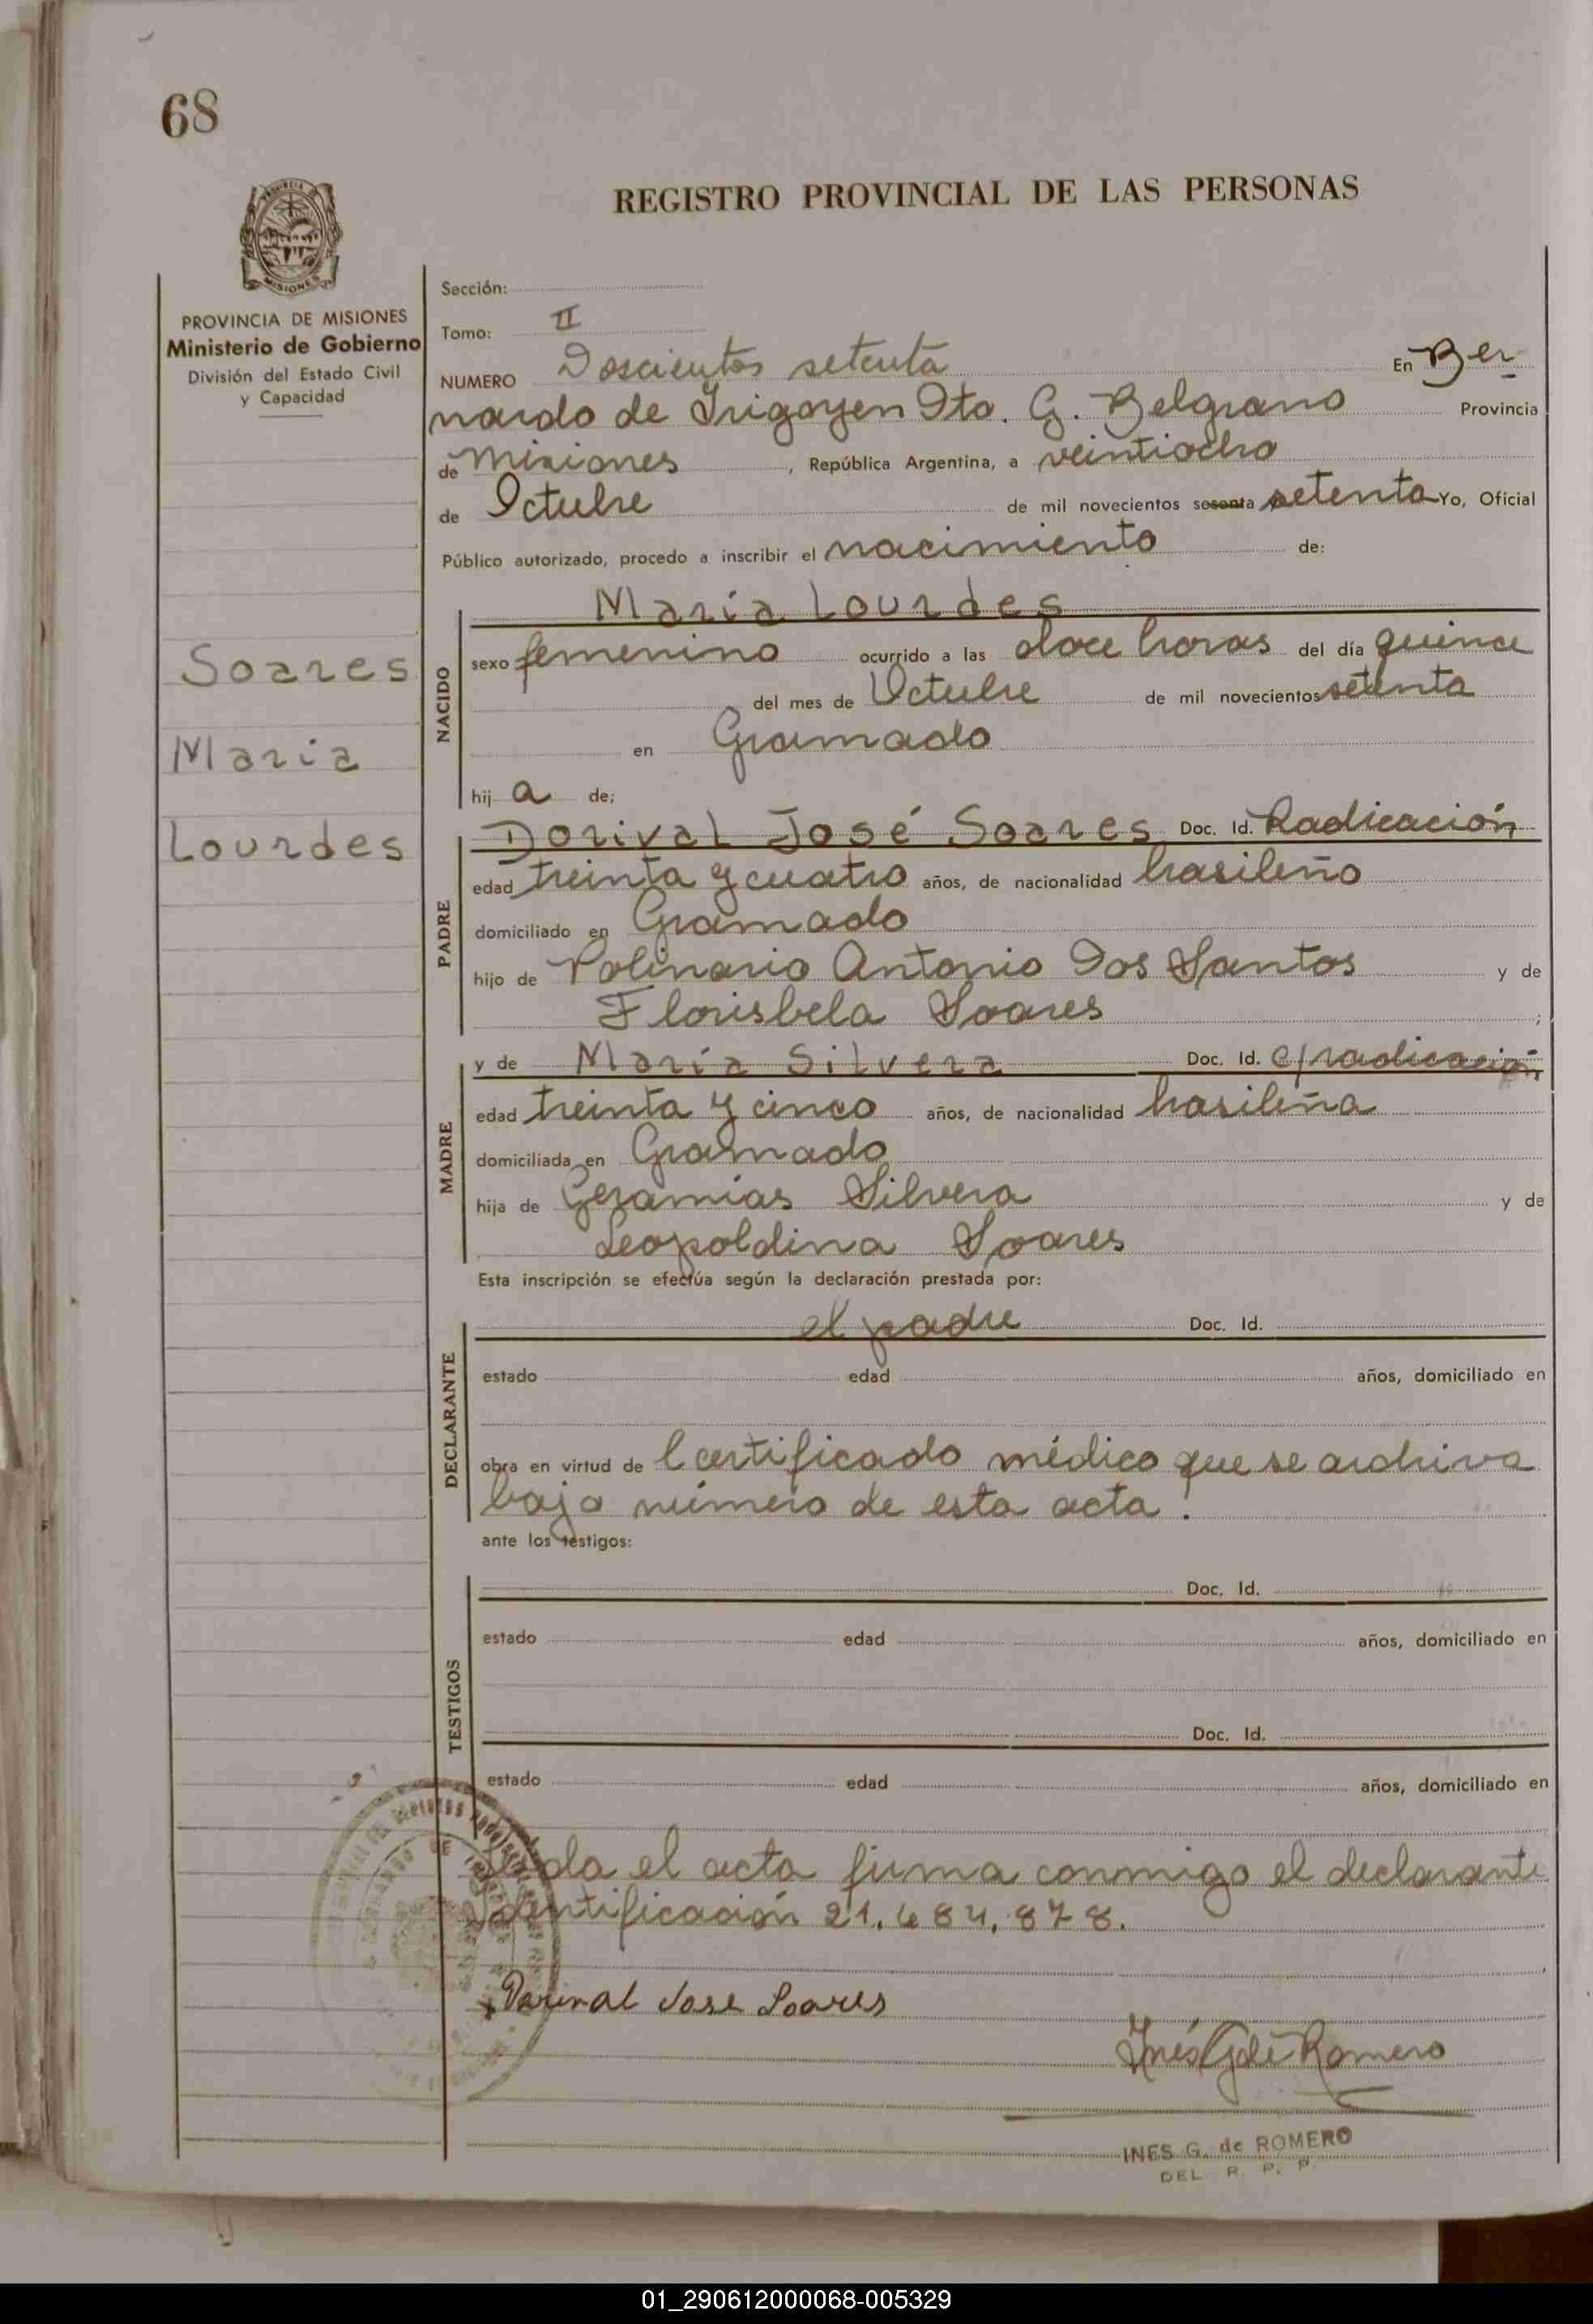 68
REGISTRO PROVINCIAL DE LAS PERSONAS
MISIONES
PROVINCIA DE MISIONES
Ministerio de Gobierno
División del Estado Civil
y Capacidad
Soares
Maria
Lourdes
Sección:
Tomo: II
NUMERO Doscientos setenta En Ber-
nardo de Irigoyen Dto. G. Belgrano Provincia
de Misiones, República Argentina, a veintiocho
de Octubre de mil novecientos sesenta setenta Yo, Oficial
Público autorizado, procedo a inscribir el nacimiento de:
María Lourdes
NACIDO
sexo femenino ocurrido a las doce horas del día quince
del mes de Octubre de mil novecientos setenta
en Gramado
hij a de;
PADRE
Dorival José Soares Doc. Id. Radicación
edad treinta y cuatro años, de nacionalidad brasileño
domiciliado en Gramado
hijo de Polinario Antonio Dos Santos y de
Florisbela Soares ;
MADRE
y de María Silvera Doc. Id. c/radicación
edad treinta y cinco años, de nacionalidad brasileña
domiciliada en Gramado
hija de Geramias Silvera y de
Leopoldina Soares
Esta inscripción se efectúa según la declaración prestada por:
DECLARANTE
el padre Doc. Id.
estado edad años, domiciliado en
obra en virtud de l certificado médico que se archiva
bajo número de esta acta.
ante los testigos:
TESTIGOS
Doc. Id.
estado edad años, domiciliado en
Doc. Id.
estado edad años, domiciliado en
Leida el acta firma conmigo el declarante
Identificación 21.484.878.
Dorival Jose Soares
Inés G de Romero
INES G. de ROMERO
DEL R. P. P.
01_290612000068-005329